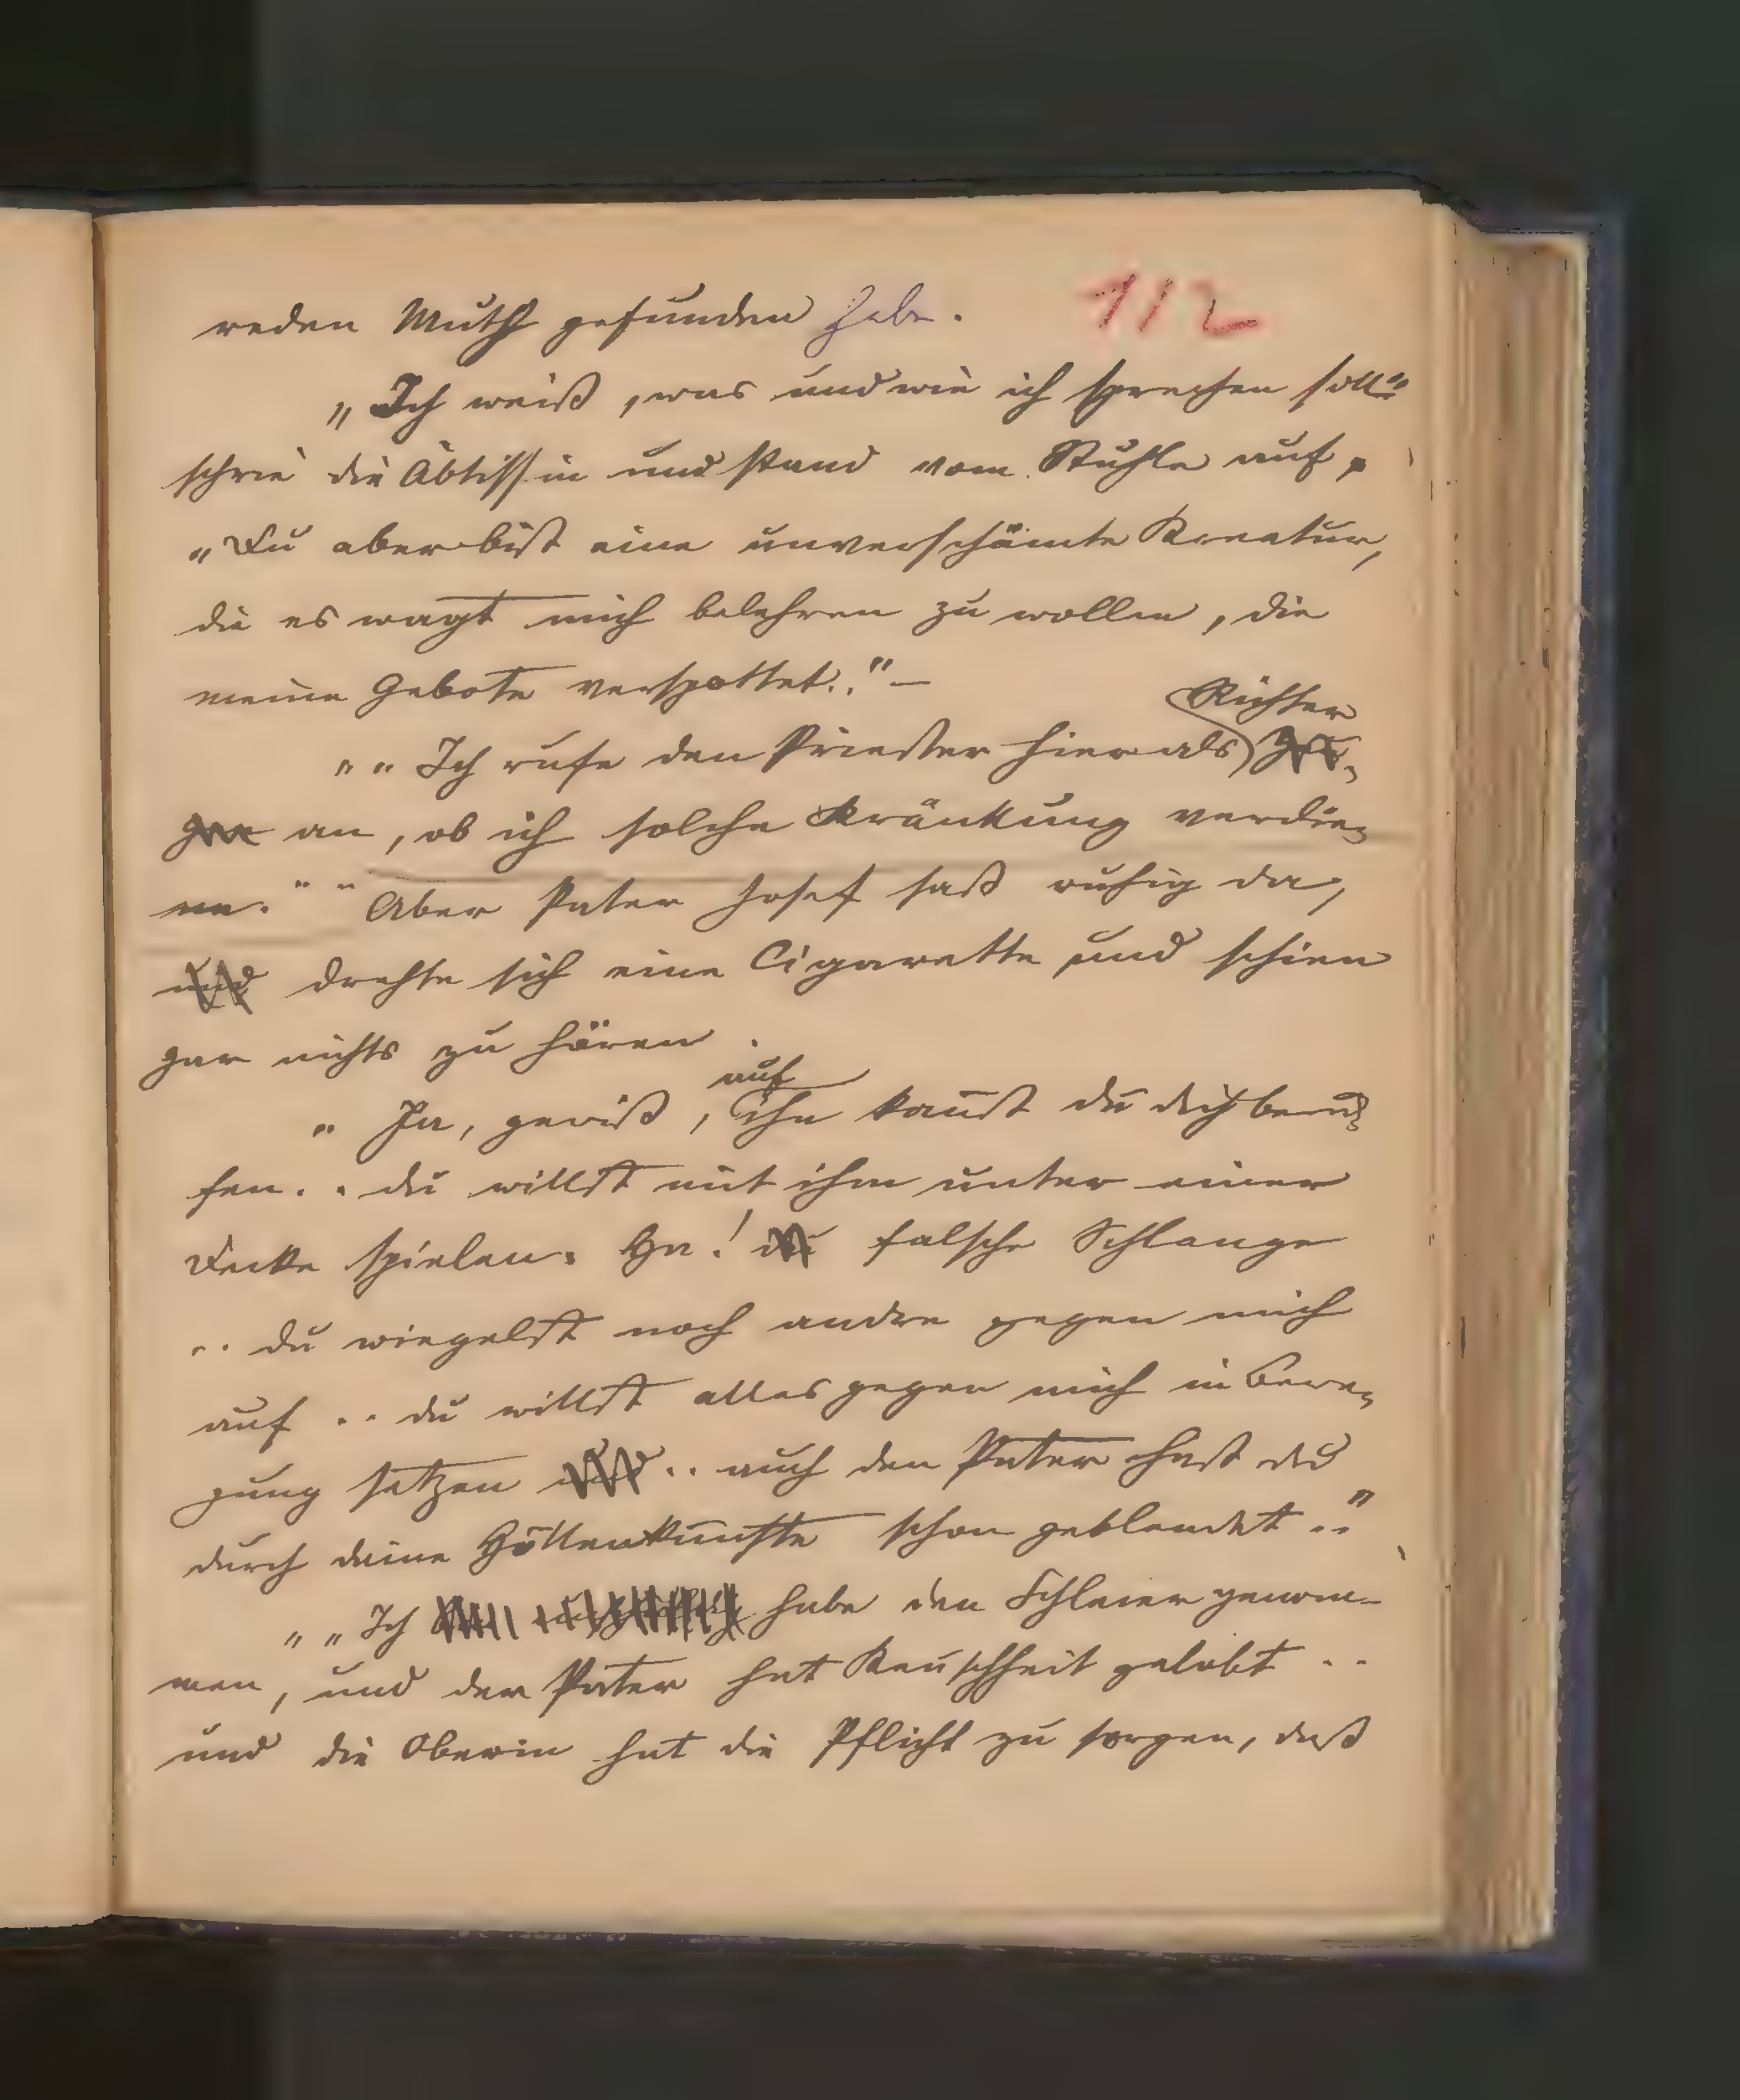 reden Muth gefunden habe. 112
„Ich weiß, was und wie ich sprechen soll“
schrie die Äbtissin und stand vom Stuhle auf,
„Du aber bist eine unverschämte Kreatur,
die es wagt mich belehren zu wollen, die
meine Gebote verspottet..“ —
Richter
„„Ich rufe den Priester hier als Zeu-
gen an, ob ich solche Kränkung verdie-
ne.““ Aber Pater Josef saß ruhig da,
und drehte sich eine Cigarette und schien
gar nichts zu hören.
auf
„Ja, gewiß, ihn kannst du dich beru-
fen.. du willst mit ihm unter einer
Decke spielen. Ha! du falsche Schlange
.. du wiegelst noch andre gegen mich
auf .. du willst alles gegen mich in Bewe-
gung setzen und .. auch den Pater hast du
durch deine Höllenkünste schon geblendet..“
„„Ich habe den Schleier genom-
men, und der Pater hat Keuschheit gelobt ..
und die Oberin hat die Pflicht zu sorgen, daß